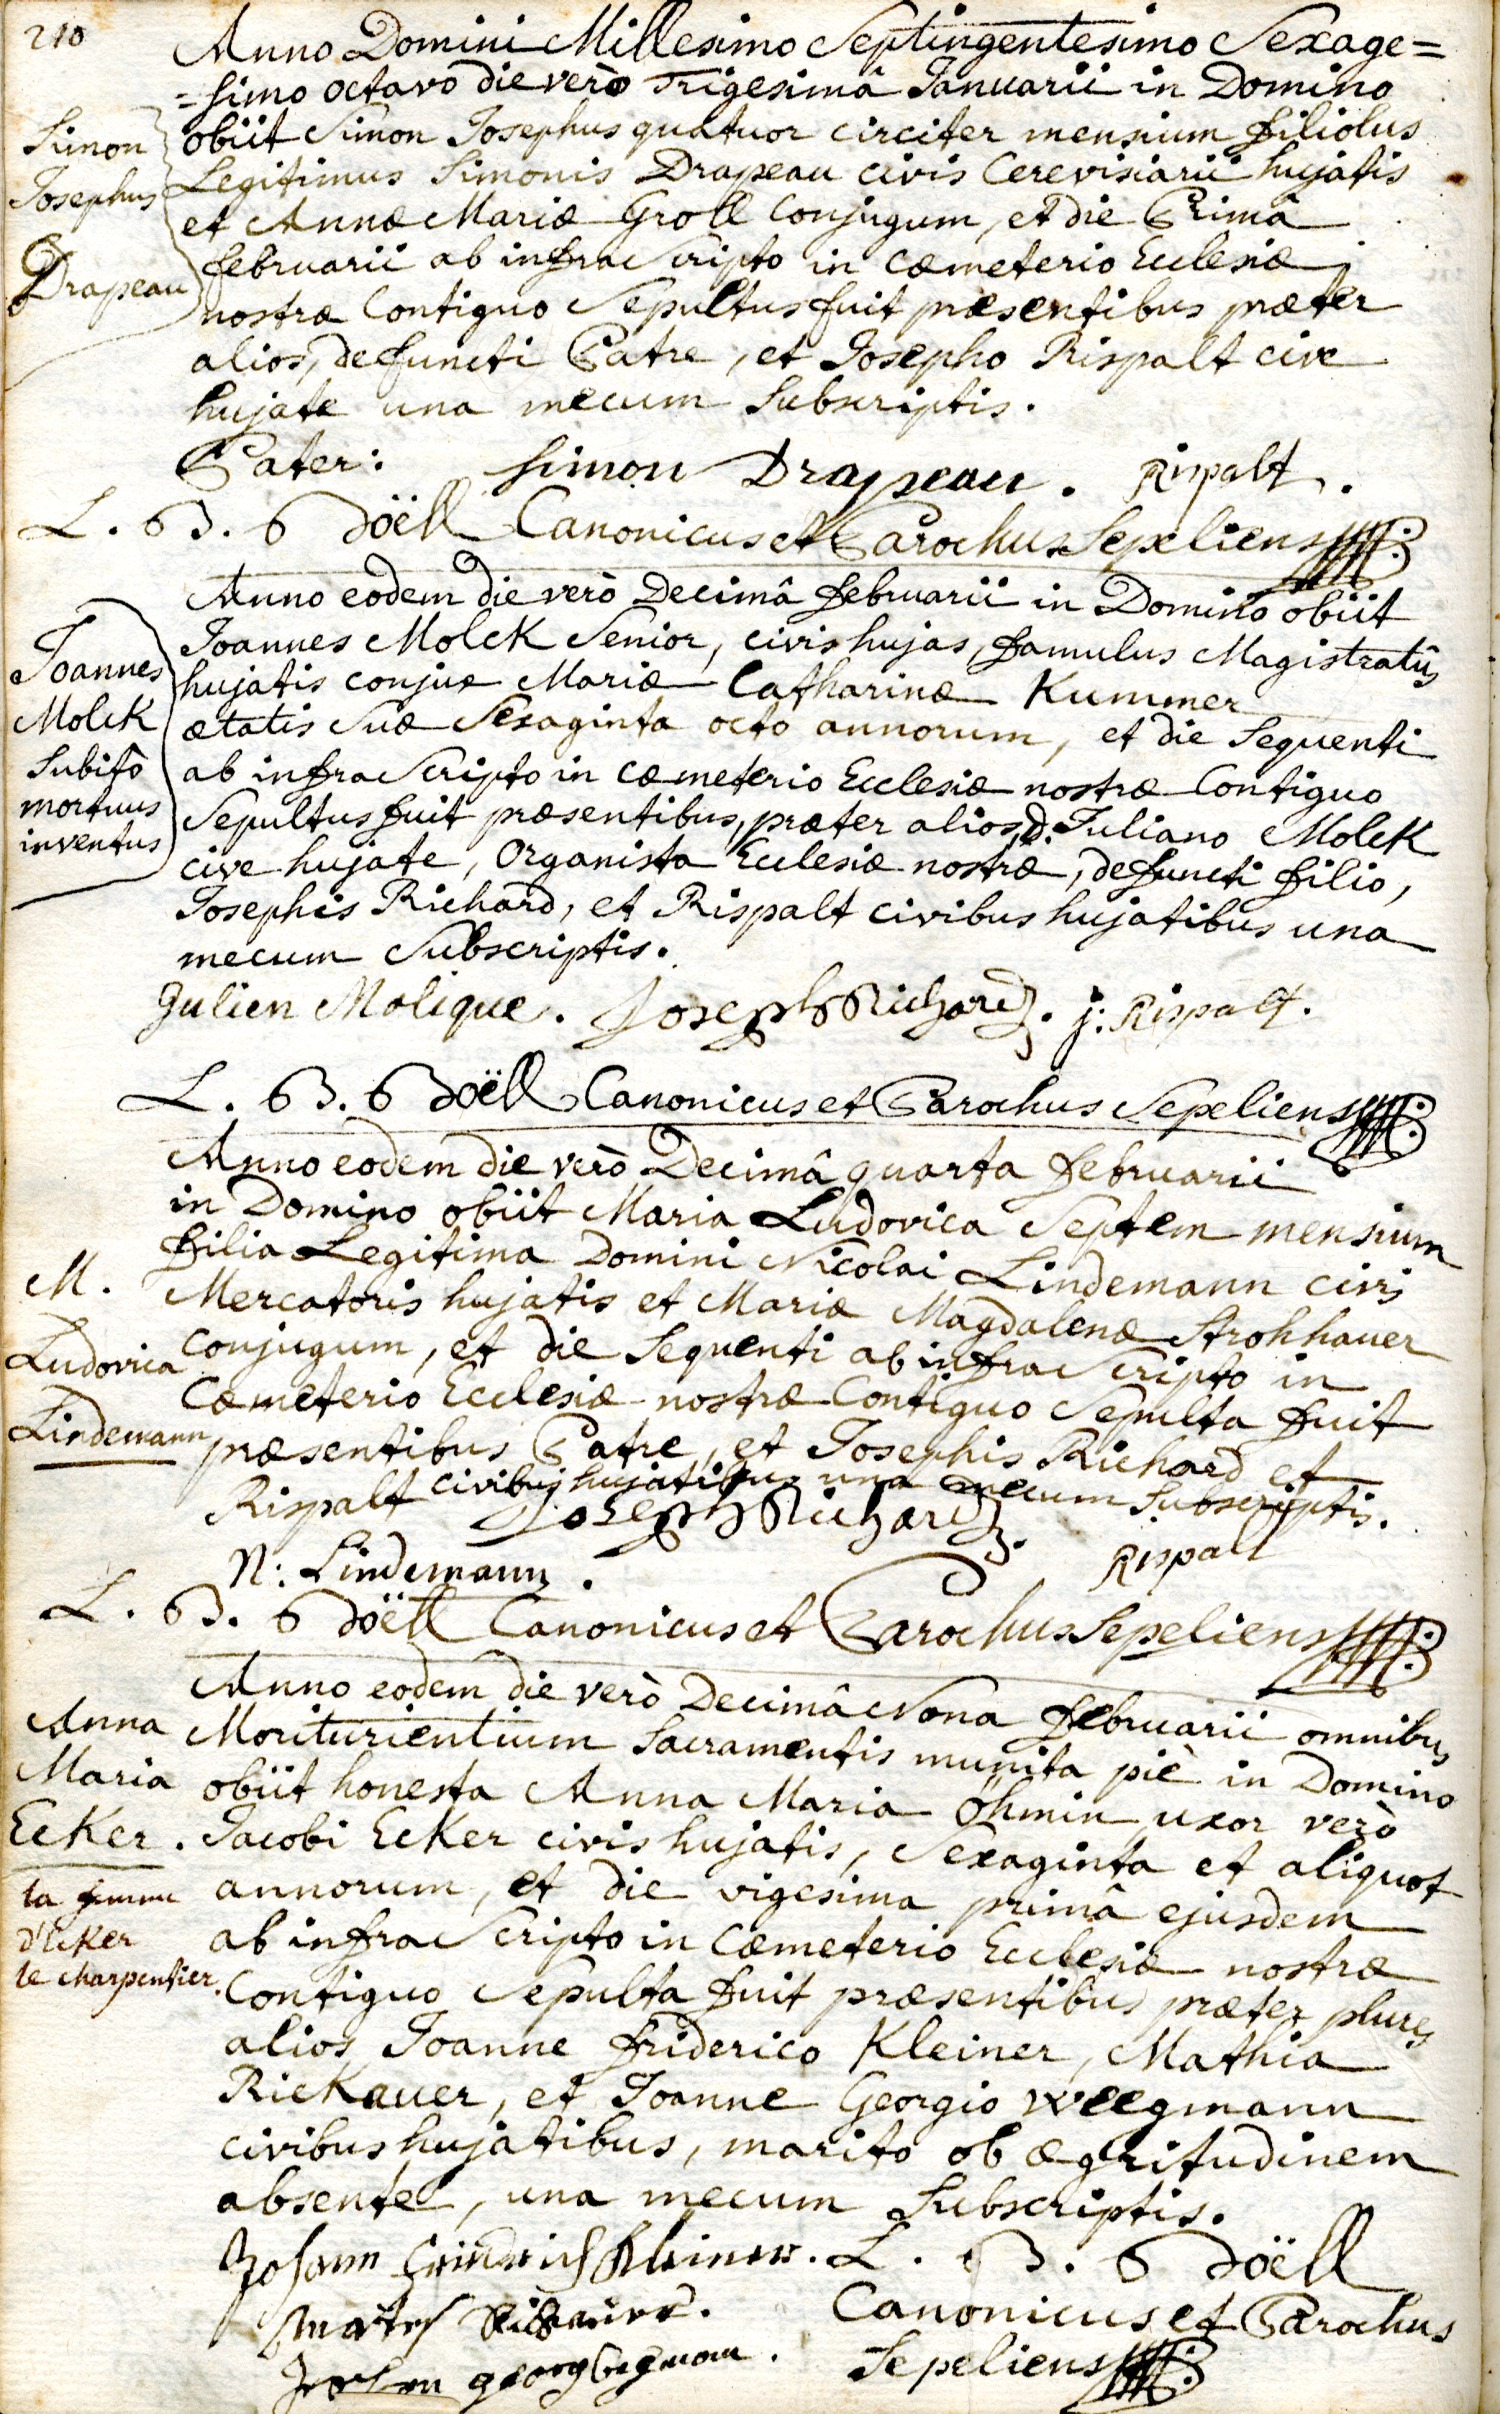 210
Anno Domini Millesimo Septingentesimo Sexage=
=simo octavo die verò Trigesimâ Januarii in Domino
obiit Simon Josephus quatuor circiter mensium filiolus
Legitimus Simonis Drapeau civis Cerevisiarii hujatis
et Annæ Mariæ Groll conjugum, et die Primâ
februarii ab infra Scripto in cæmeterio Ecclesiæ
nostræ Contiguo Sepultus fuit præsentibus præter
alios, defuncti Patre, et Josepho Rispalt cive
hujate una mecum Subscriptis.
Simon
Josephus
Drapeau
Pater: Simon Drapeau. Rispalt.
L. B. Boëll Canonicus et Parochus Sepeliens
Anno eodem die verò Decimâ februarii in Domino obiit
Joannes Molck Senior, civis hujas, famulus Magistratûs
hujatis conjux Mariæ Catharinæ Kummer
ætatis Suæ Sexaginta octo annorum, et die Sequenti
ab infra Scripto in cæmeterio Ecclesiæ nostræ Contiguo
Sepultus fuit præsentibus, præter alios, d. Juliano Molck
cive hujate, Organista Ecclesiæ nostræ, defuncti filio,
Josephis Richard, et Rispalt civibus hujatibus una
mecum Subscriptis.
Joannes
Molck
Subitò
mortuus
inventus
Julien Molique. Joseph Richard. j: Rispalt.
L. B. Boëll Canonicus et Parochus Sepeliens
Anno eodem die verò Decimâ quarta februarii
in Domino obiit Maria Ludovica Septem mensium
filia Legitima Domini Nicolai Lindemann civis
Mercatoris hujatis et Mariæ Magdalenæ Strohhauer
conjugum, et die Sequenti ab infra Scripto in
Cæmeterio Ecclesiæ nostræ Contiguo Sepulta fuit
præsentibus Patre, et Josephis Richard et
Rispalt civibus hujatibus una mecum Subscriptis.
M.
Ludovica
Lindemann
Joseph Richard.
N: Lindemann. Rispalt
L. B. Boëll Canonicus et Parochus Sepeliens
Anno eodem die verò Decimâ Nona februarii omnibus
Moriturientium Sacramentis munita piè in Domino
obiit honesta Anna Maria Öhmin, uxor verò
Jacobi Ecker civis hujatis, Sexaginta et aliquot
annorum, et die vigesima primâ ejusdem
ab infra Scripto in Cæmeterio Ecclesiæ nostræ
Contiguo Sepulta fuit præsentibus præter plures
alios Joanne friderico Kleiner, Mathia
Rickauer, et Joanne Georgio Weegmann
civibus hujatibus, marito ob ægritudinem
absente, una mecum Subscriptis.
Anna
Maria
Ecker.
la femme
d'Ecker
le charpentier.
Johann Friedrich Kleiner. L. B. Boëll
Canonicus et Parochus
Sepeliens